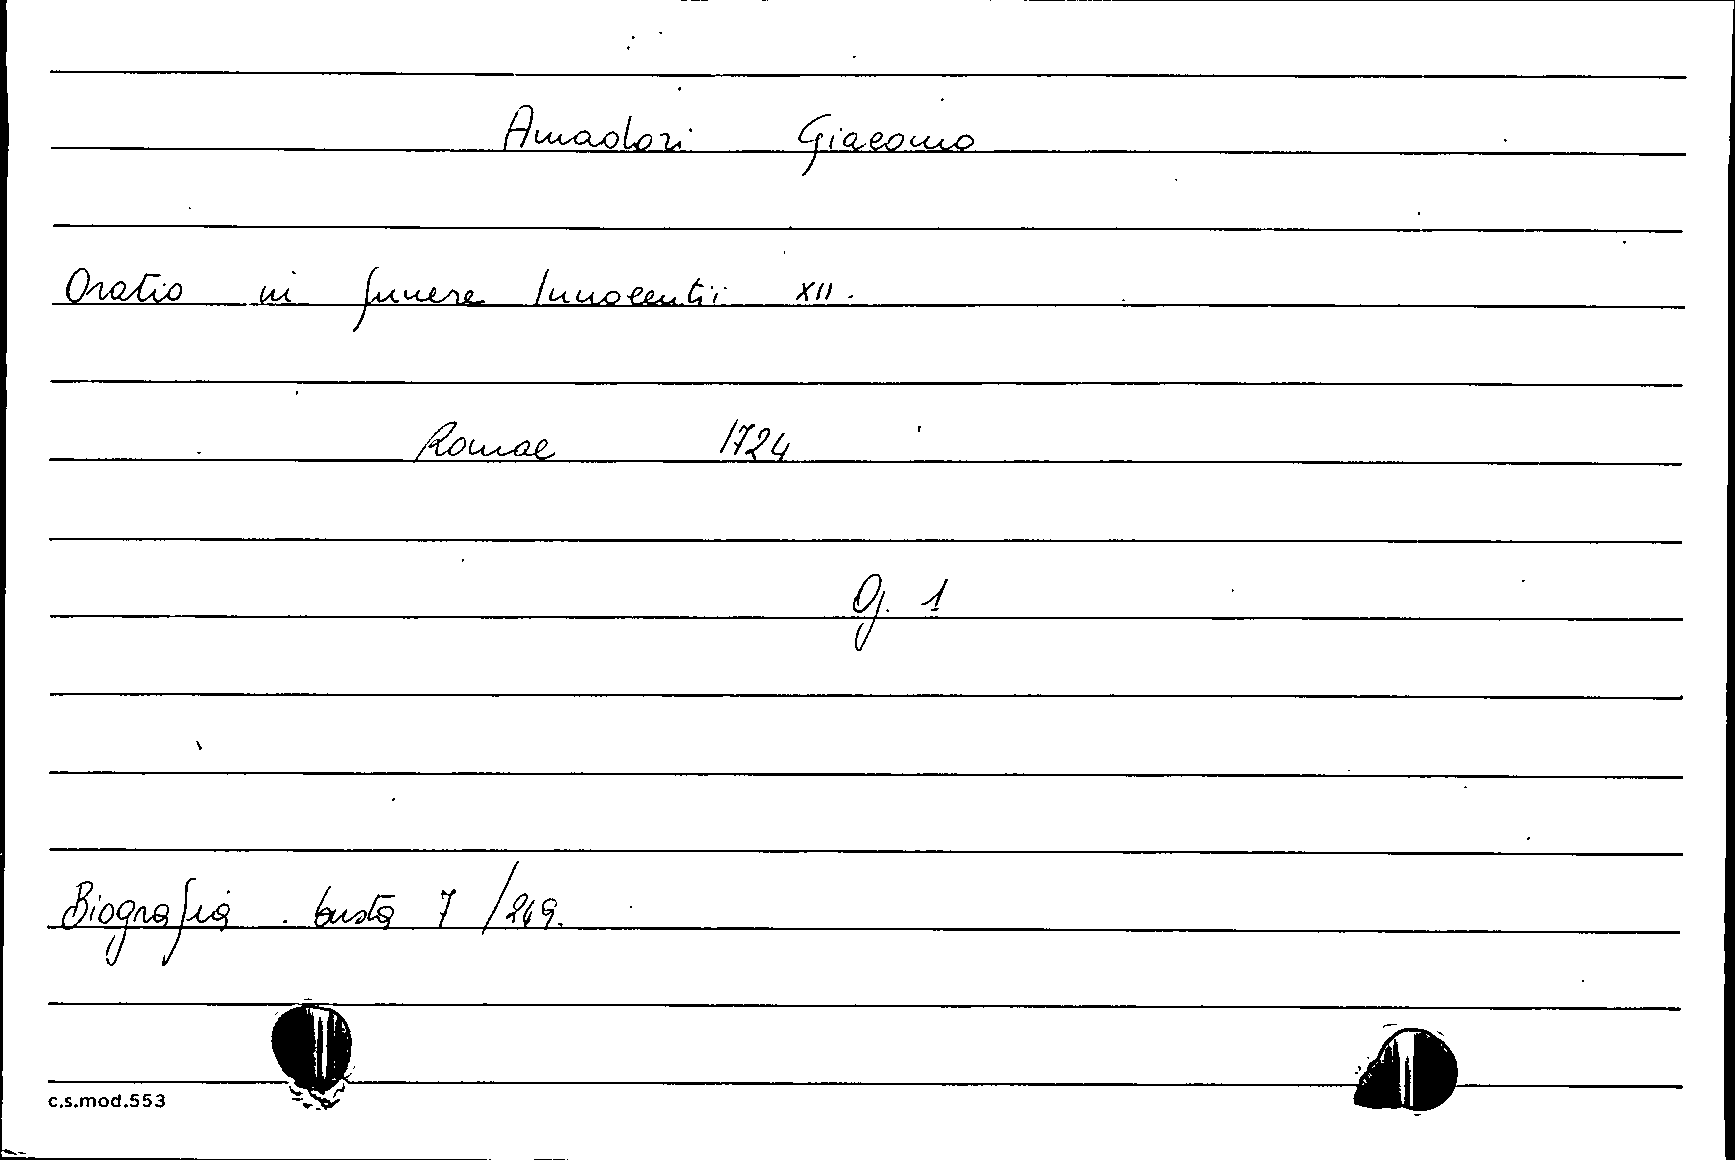 Amadori Giacomo
Oratio in funere Innocentii XII.
Romae 1724
Og. 1
Biografia. busta 7 /249.
c.s.mod.553